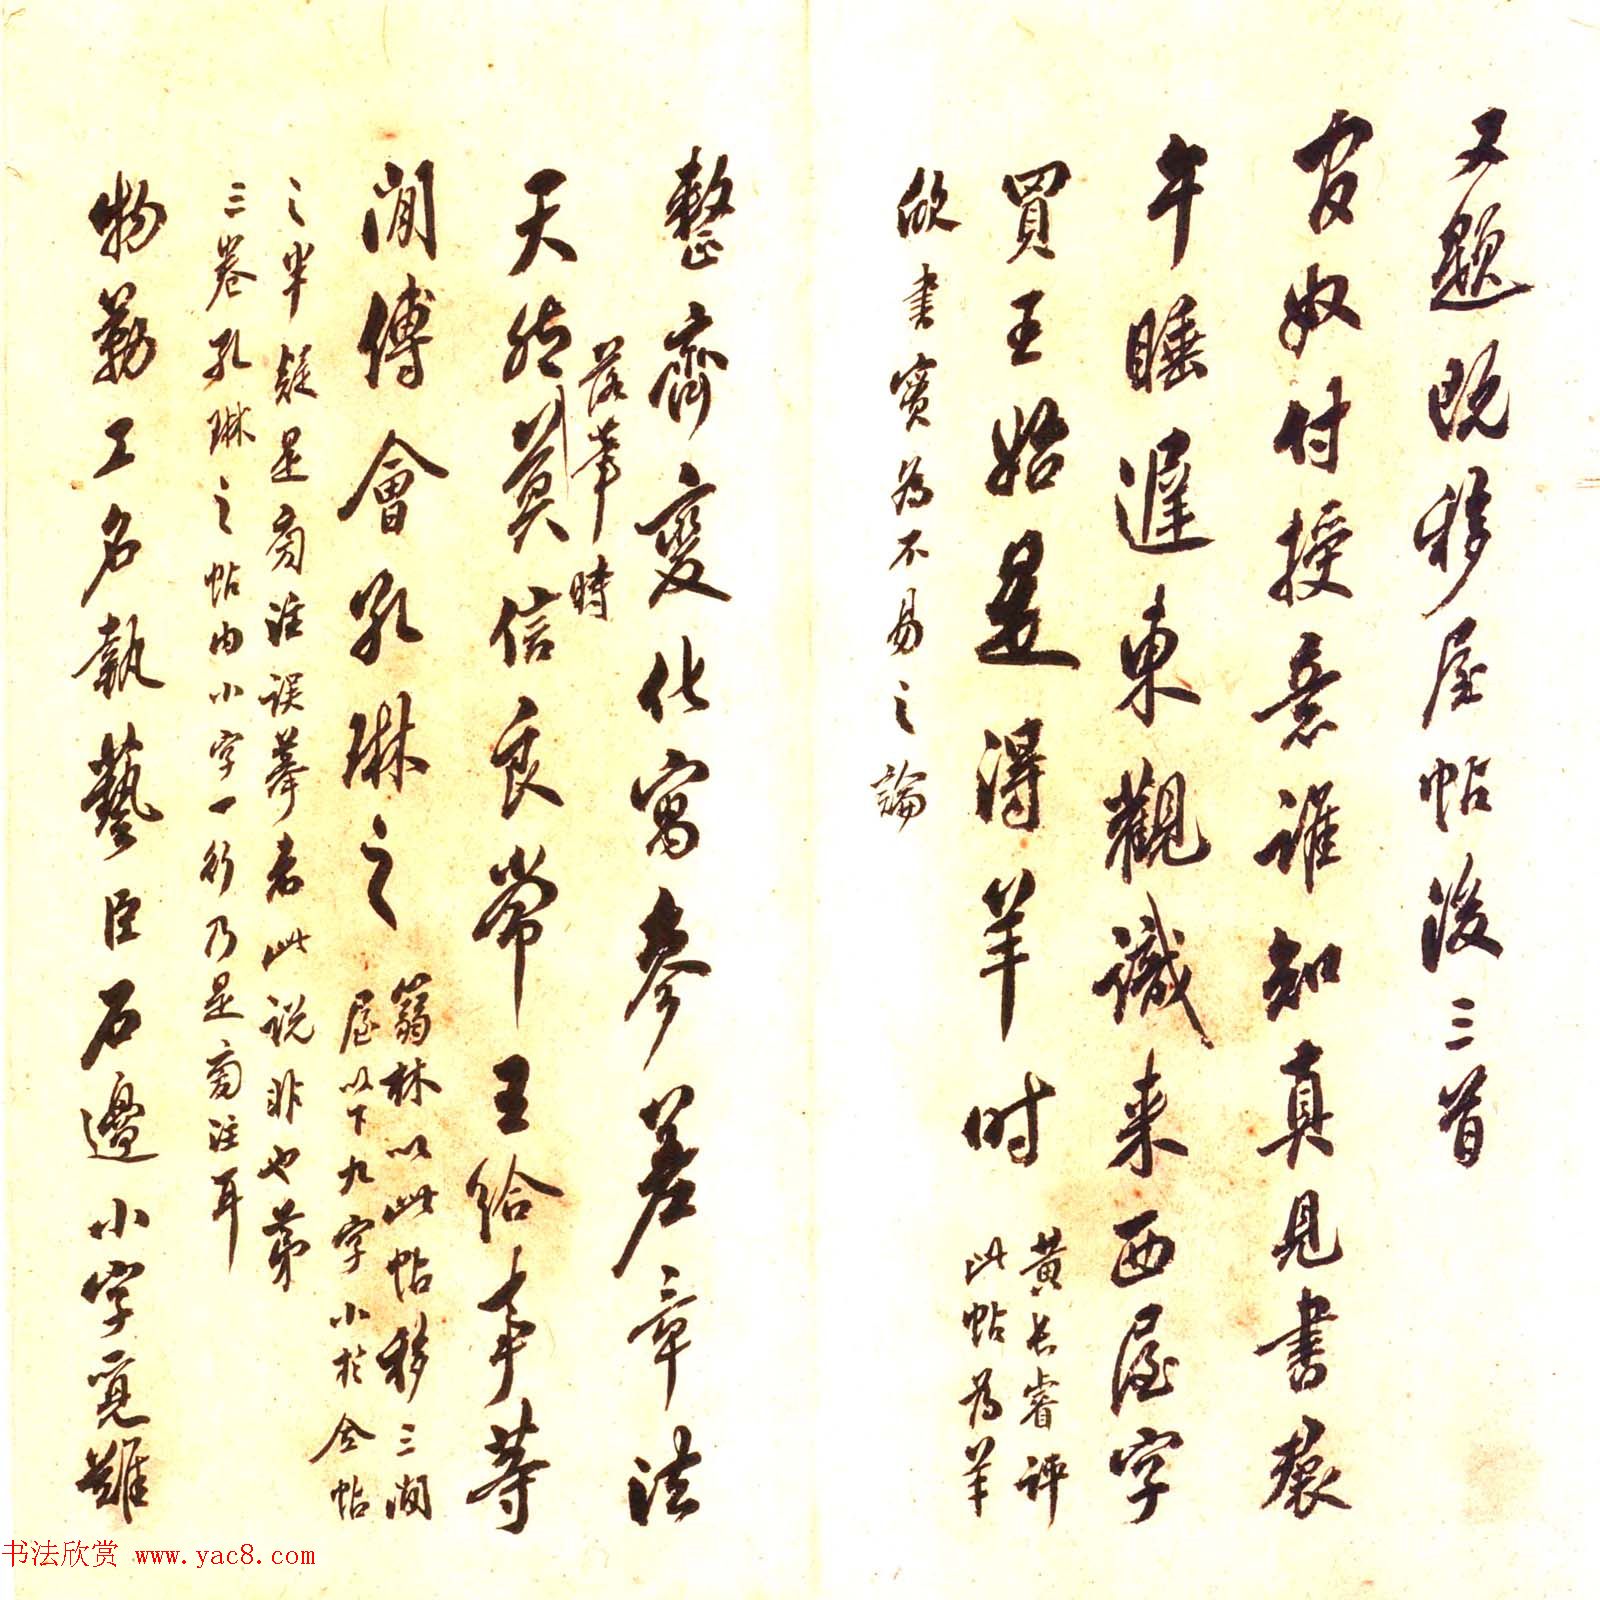 又題既移屋帖後三首
官奴付授意誰知真見書裠
午睡遲東觀識来西屋字
買王始是得羊时
黄长睿評
此帖为羊
欣書實为不易之論
整齊變化寓參差章法
天然莫信良常王給事等
落筆時
閒傅會孔琳之
蒻林以此帖移三閒
屋以下九字小於全帖
之半疑是旁注误摹者此说非也苐
三卷孔琳之帖内小字一行乃是旁注耳
物勒工名執藝臣石邊小字覓難
书法欣赏 www.yac8.com